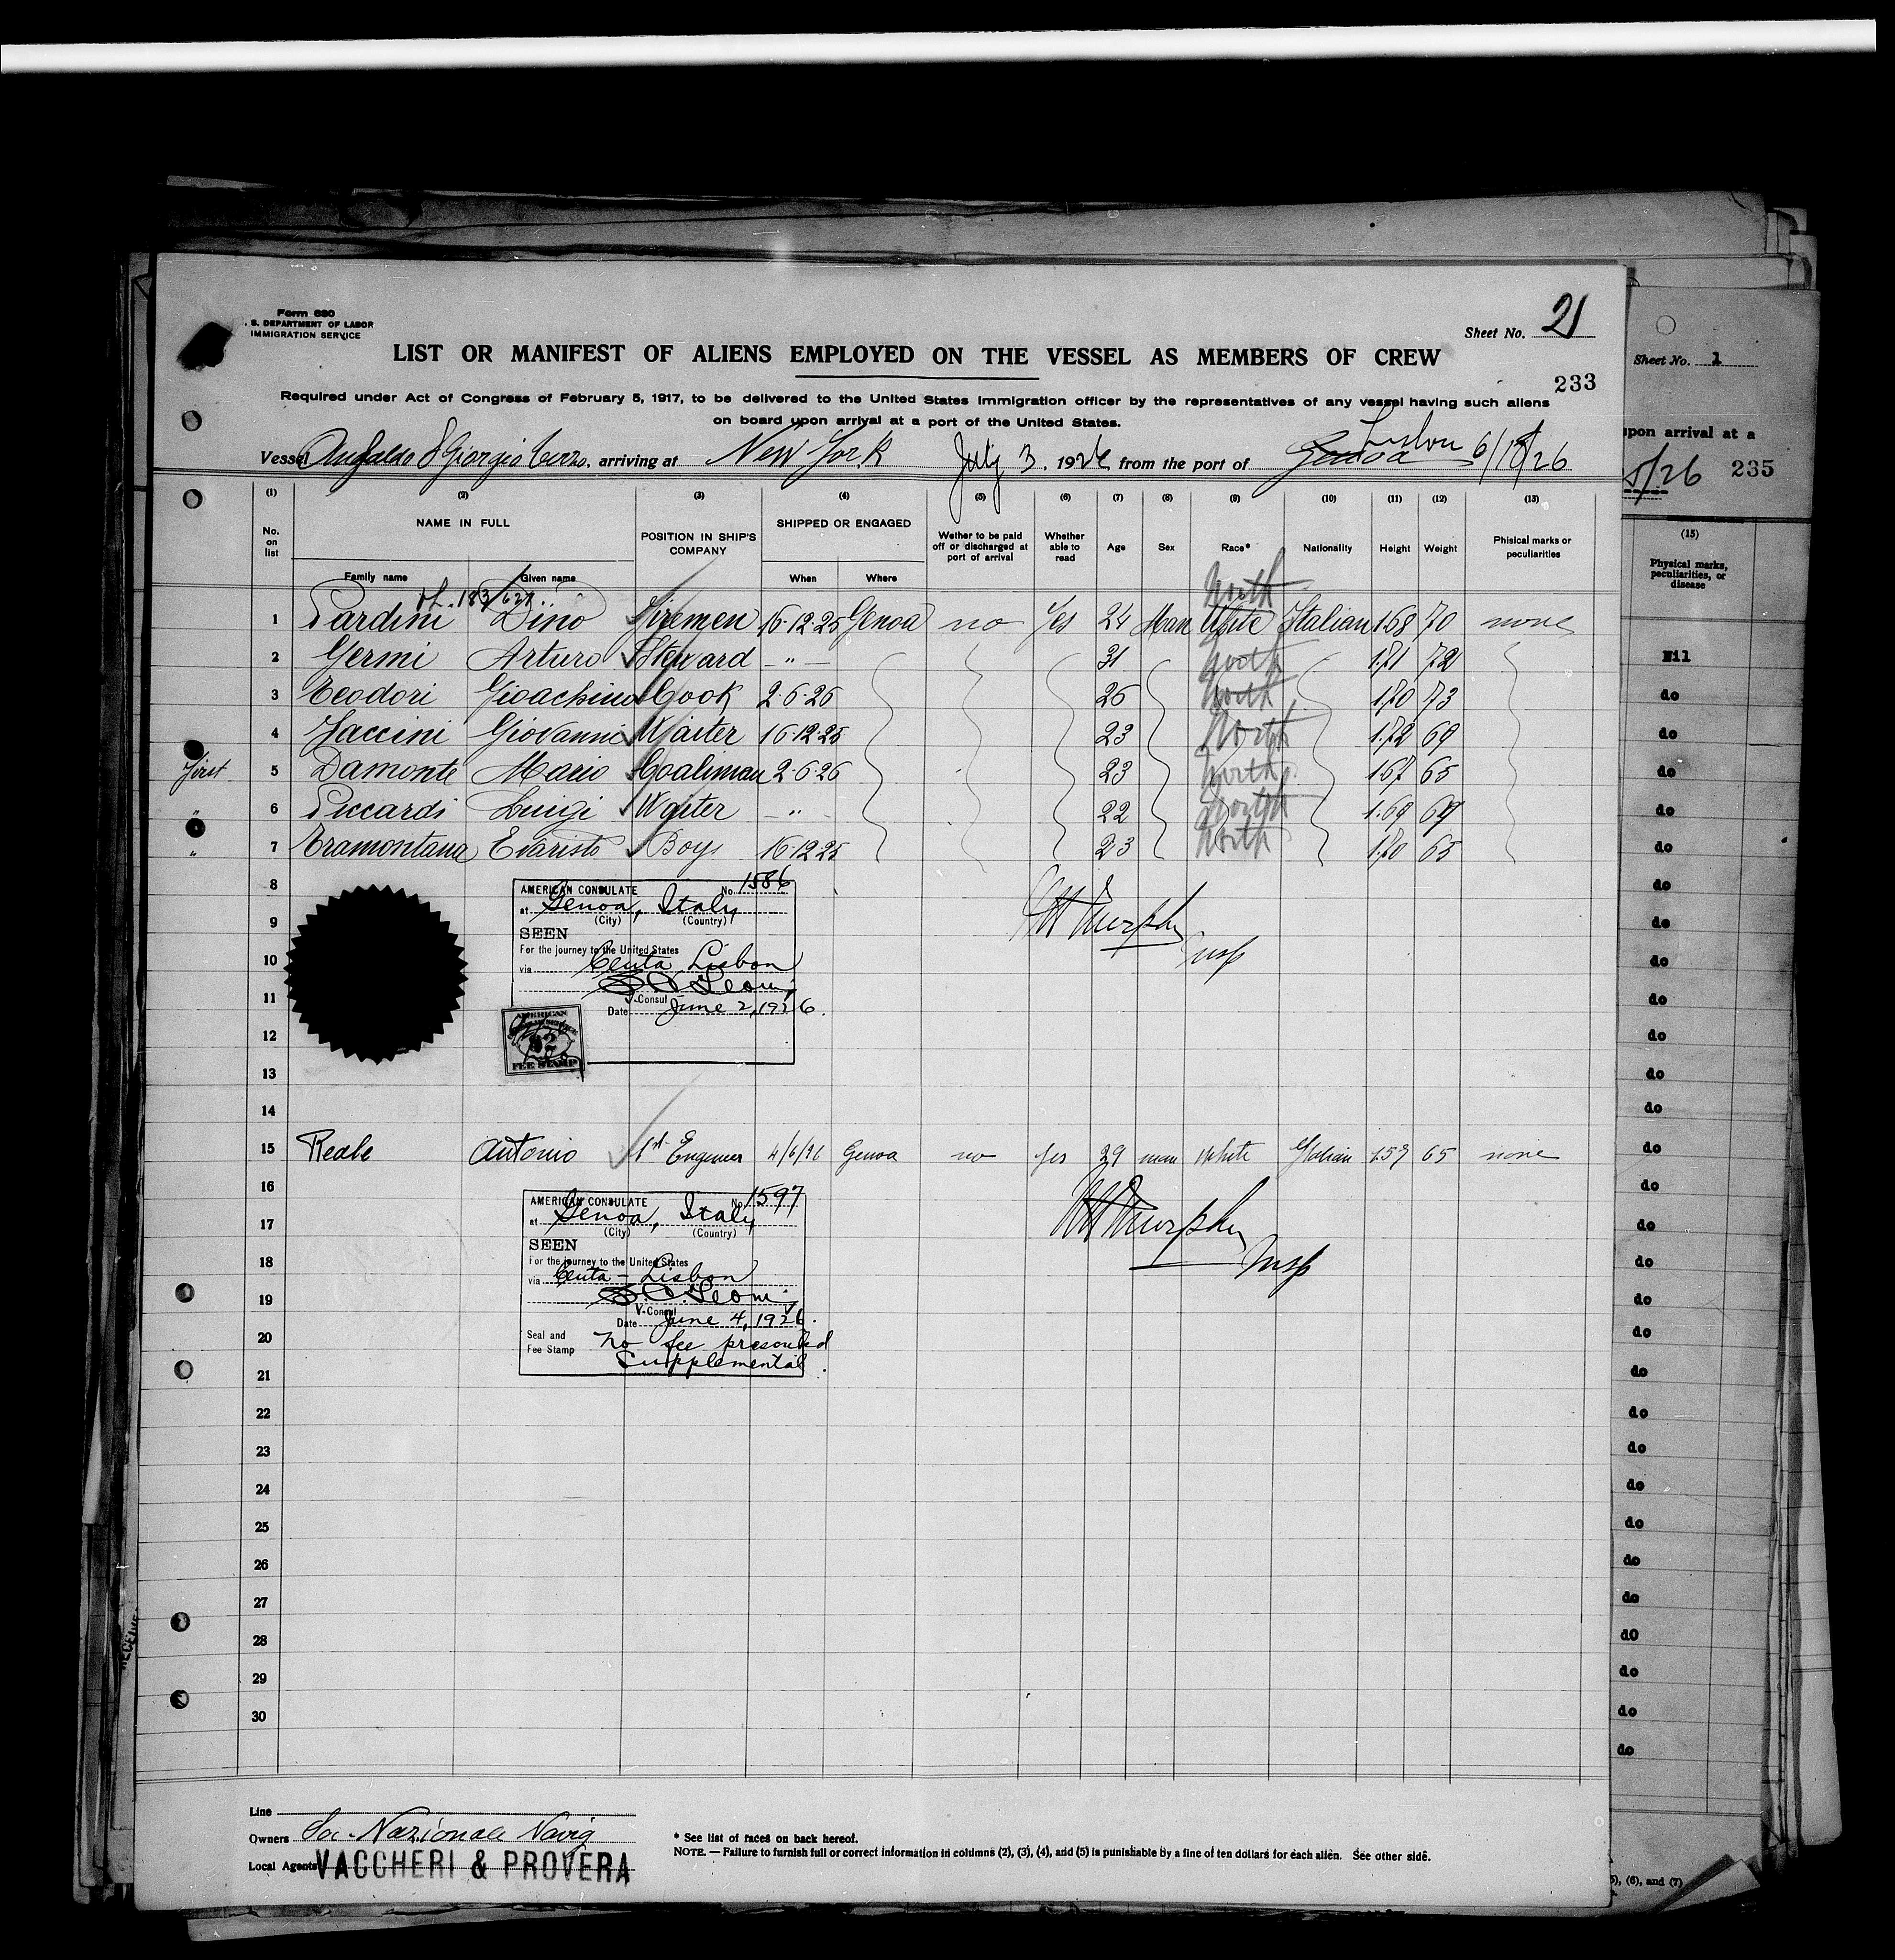 Form 680
. S. DEPARTMENT OF LABOR
IMMIGRATION SERVICE
Sheet No. 21
LIST OR MANIFEST OF ALIENS EMPLOYED ON THE VESSEL AS MEMBERS OF CREW
233
Required under Act of Congress of February 5, 1917, to be delivered to the United States Immigration officer by the representatives of any vessel having such aliens
on board upon arrival at a port of the United States.
Vessel Ansaldo S Giorgio terzo, arriving at New York July 3, 1926 from the port of Genoa Lisbon 6/18/26
(1) (2) (3) (4) (5) (6) (7) (8) (9) (10) (11) (12) (13)
No. on list NAME IN FULL POSITION IN SHIP'S COMPANY SHIPPED OR ENGAGED Wether to be paid off or discharged at port of arrival Whether able to read Age Sex Race* Nationality Height Weight Phisical marks or peculiarities
Family name Given name When Where
North
1 Pardini Dino Firemen 16-12-25 Genoa no Yes 24 Man White Italian 1.68 70 none
2 Germi Arturo Steward " 31 North 1.71 72
3 Teodori Gioachino Cook 2-6-26 26 North 1.70 73
4 Jaccini Giovanni Waiter 16-12-25 23 North 1.72 69
First 5 Damonte Mario Coaliman 2-6-26 23 North 1.67 65
" 6 Piccardi Luigi Waiter " 22 North 1.69 69
" 7 Tramontana Evaristo Boy 16-12-25 23 North 1.70 65
8
9
10
11
12
13
14
AMERICAN CONSULATE No. 1586
at Genoa, Italy
(City) (Country)
SEEN
For the journey to the United States
via Ceuta Lisbon
V-Consul
Date June 2, 1926.
AMERICAN
$2
FEE STAMP
Murphy
Insp
15 Reale Antonio 1st Engineer 4/6/26 Genoa no yes 29 man white Italian 1.57 65 none
16
17
18
19
20
21
AMERICAN CONSULATE No. 1597
at Genoa, Italy
(City) (Country)
SEEN
For the journey to the United States
via Ceuta - Lisbon
V-Consul
Date June 4, 1926.
Seal and
Fee Stamp
No fee prescribed
Supplemental
Murphy
Insp
22
23
24
25
26
27
28
29
30
Line
Owners Soc. Nazionale Navig
Local Agents VACCHERI & PROVERA
* See list of races on back hereof.
NOTE. — Failure to furnish full or correct information in columns (2), (3), (4), and (5) is punishable by a fine of ten dollars for each alien. See other side.
Sheet No. 1
upon arrival at a
5/26 235
(15)
Physical marks,
peculiarities, or
disease
Nil
do
do
do
do
do
do
do
do
do
do
do
do
do
do
do
do
do
do
do
do
do
do
do
do
do
do
do
do
do
(6), and (7)